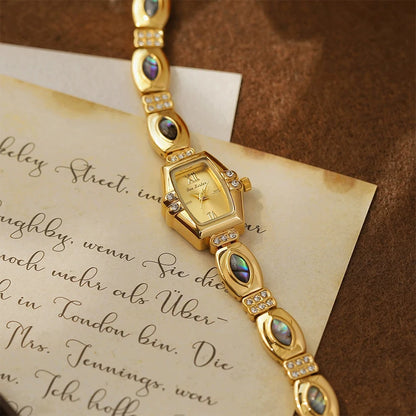 keley Street, im
loughby, wenn Sie die
noch mehr als Über-
h in London bin. Die
Mrs. Jennings, war
. Ich hoff
XII
VI